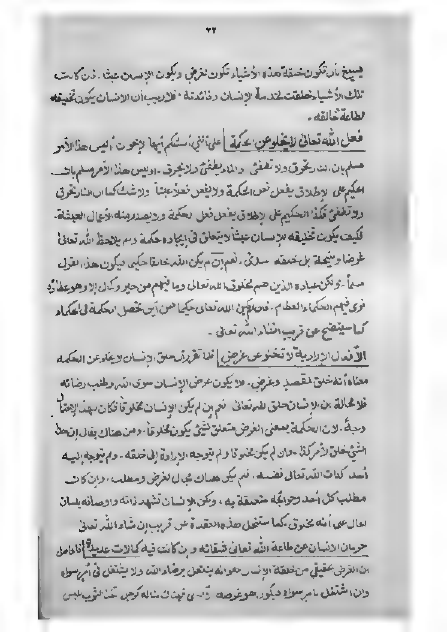 ٣٢
يسيغ بأن تكون خلقة هذه الأشياء تكون لغرض ويكون الإنسان عبثا. فإن كانت
تلك الأشياء خلقت لخدمة الإنسان وفائدته. فلاريب أن الانسان يكون تخليقه
لطاعة خالقه.
فعل الله تعالى لا يخلو عن الحكمة أيها الإخوة أليس هذا الأمر
مسلم بأن النار تحرق ولا تطفئ والماء يطفئ ولا يحرق. أوليس هذا الأمر مسلم بأن
الحكيم على الإطلاق يفعل فعل الحكمة ولا يفعل فعلا عبثا ولا شك كما أن النار تحرق
ولا تطفئ فكذا الحكيم على الإطلاق يفعل فعل الحكمة ولا يصدر منه الأعمال العبثة.
فكيف يكون تخليقه للإنسان عبثا لا يتعلق في إيجاده حكمة ولم يلاحظ الله تعالى
نعم إن لم يكن الله خالقا حكيما فيكون هذا القول
ولكن عباده الذين هم مخلوق الله تعالى وما فيهم من خير وكمال إلا وهو عطاؤه
الحكماء العظام. فإن لم يكن الله تعالى حكيما فمن أين تحصل الحكمة في الحكماء
كما سيتضح عن قريب إنشاء الله تعالى.
الأفعال الإرادية لا تخلو عن غرض فلما تقرر أن خلق الإنسان لا يخلو عن الحكمة
معناه أنه خلق لمقصد وغرض. ولا يكون غرض الإنسان سوى الله وطلب رضائه
فلا محالة بأن الإنسان خلق لله تعالى نعم إن لم يكن الإنسان مخلوقا فكان لهذا الاحتمال
وجه. لأن الحكمة بمعنى الغرض متعلق لشئ يكون مخلوقا. ومن هناك يقال إن هذا
الشئ خلق لأمر كذا وإن لم يكن مخلوقا ولم تتوجه الإرادة إلى خلقه. ولم يتوجه إليه
أحد كذات الله تعالى فلم يكن هناك مجال لغرض ومطلب. وإن كانت
مطلب كل أحد وحوائجه متعلقة به. ولكن الإنسان تشهد ذاته وأوصافه بلسان
الحال على أنه مخلوق كما ستنحل هذه العقدة عن قريب إن شاء الله تعالى
حرمان الانسان عن طاعة الله تعالى شقائه وإن كانت فيه كمالات عديدة
أن الغرض الحقيقي من خلقة الإنسان هو أنه يشتغل برضاء الله ولا يشتغل في أمر سواه
وإن اشتغل بأمر سواه ويكون هو غرضه فهناك مثاله كرجل